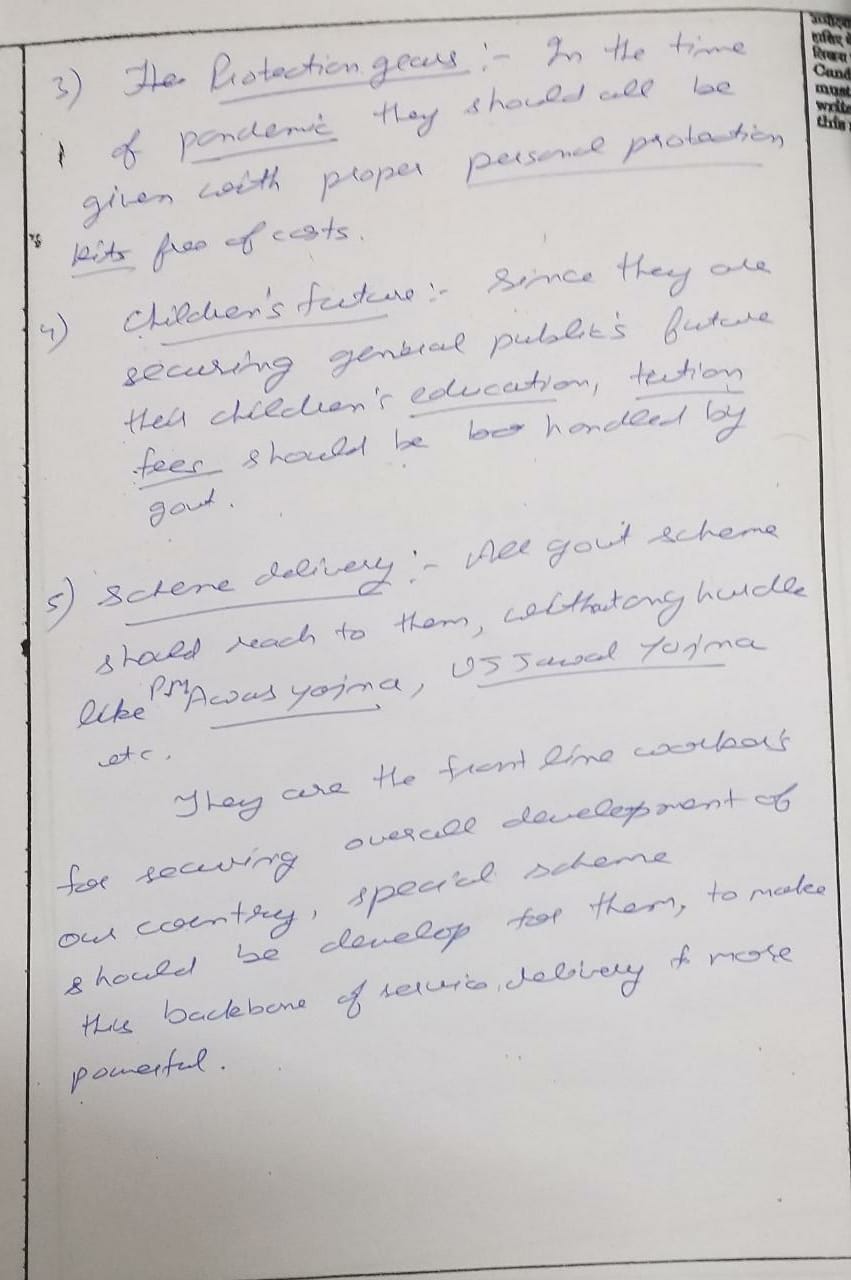 3) The Protection gears :- In the time
of pandemic they should all be
given with proper personal protection
kits free of costs.
4) Children's future :- Since they are
securing genbral public's future
their children's education, tution
fees should be handled by
govt.
5) Scheme delivery :- All gov't scheme
should reach to them, without any hurdle
like PM Awas yojna, USJawal Yojna
etc.
They are the front line workers
for securing overall development of
our country, special scheme
should be develop for them, to make
this backbone of service delivery more
powerful.
Cand
must
write
this